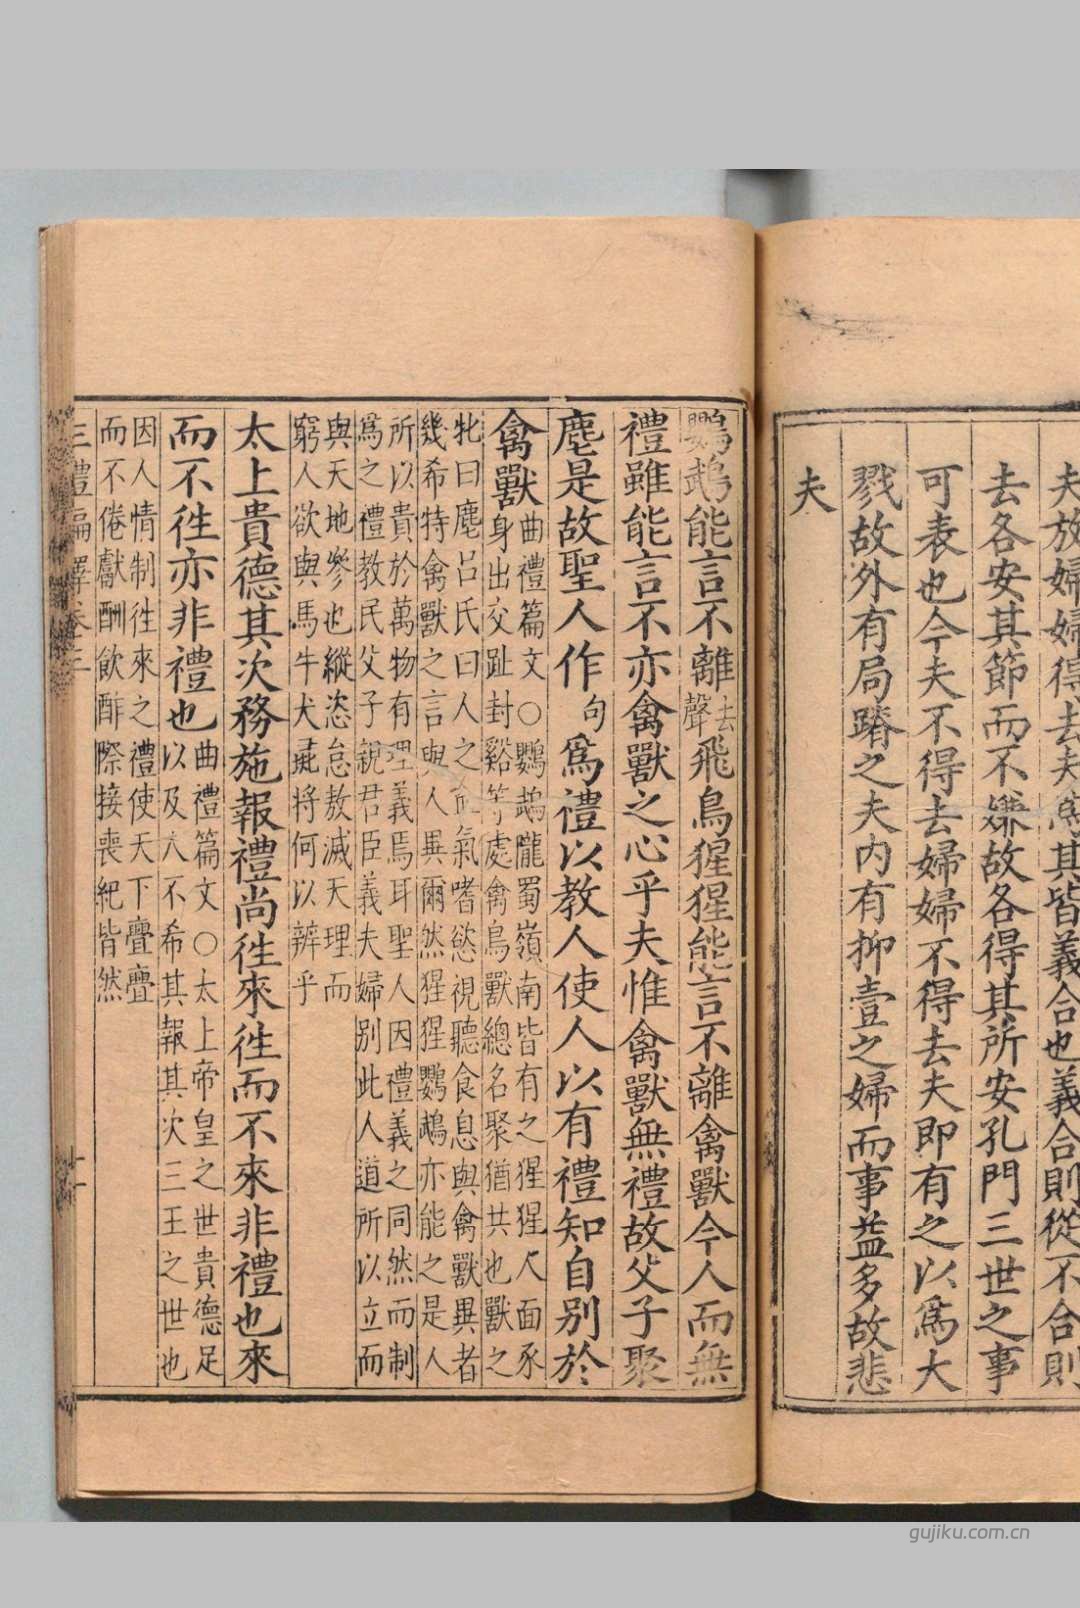 夫放婦婦得去夫爲其皆義合也義合則從不合則
去各安其節而不嫌故各得其所安孔門三世之事
可表也今夫不得去婦婦不得去夫即有之以爲大
戮故外有局蹐之夫内有抑壹之婦而事益多故悲
夫
鸚鵡能言不離去聲飛鳥猩猩能言不離禽獸今人而無
禮雖能言不亦禽獸之心乎夫惟禽獸無禮故父子聚
麀是故聖人作句爲禮以教人使人以有禮知自别於
禽獸
曲禮篇文○鸚鵡隴蜀嶺南皆有之猩猩人面豕
身出交趾封谿等處禽鳥獸總名聚猶共也獸之
牝曰麀吕氏曰人之血氣嗜慾視聽食息與禽獸異者
幾希特禽獸之言與人異爾然猩猩鸚鵡亦能之是人
所以貴於萬物有理義焉耳聖人因禮義之同然而制
爲之禮教民父子親君臣義夫婦别此人道所以立而
與天地參也縱恣怠敖滅天理而
窮人欲與馬牛犬彘將何以辨乎
太上貴德其次務施報禮尚徃來徃而不來非禮也來
而不徃亦非禮也
曲禮篇文○太上帝皇之世貴德足
以及人不希其報其次三王之世也
因人情制徃來之禮使天下亹亹
而不倦獻酬飲酢際接喪紀皆然
三禮編繹卷三
十一
gujiku.com.cn